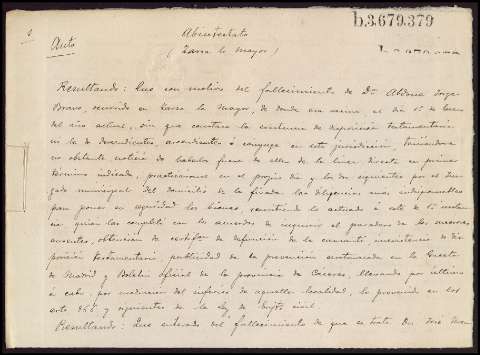 b.3.679.379
Abintestato
Auto
(Zarza la Mayor)
Resultando: Que con motivo del fallecimiento de Dª Aldonza Jorge
Bravo, ocurrido en Zarza la Mayor, de donde era vecina, el día 15 de Enero
del año actual, sin que constara la existencia de disposición testamentaria
ni la de descendientes, ascendientes ó cónyuge en esta jurisdicción, teniéndose
no obstante noticia de haberlos fuera de ella de la línea directa en primer
término indicado, practicáronse en el propio día y los dos siguientes por el Juz-
gado municipal del domicilio de la finada las diligencias mas indispensables
para poner en seguridad los bienes, remitiendo lo actuado á este de 1ª instan-
cia quien las completó con los acuerdos de inquirir el paradero de los
ausentes, obtención de certifón de defunción de la causante, inexistencia de dis-
posición testamentaria, publicidad de la prevención en la Gaceta
de Madrid y Boletín oficial de la provincia de Cáceres, llevando por último
á cabo, por mediación del inferior de aquella localidad, lo prevenido en los
artos 966 y siguientes de la ley de Enjto civil.
Resultando: Que enterado del fallecimiento de que se trata Dn José